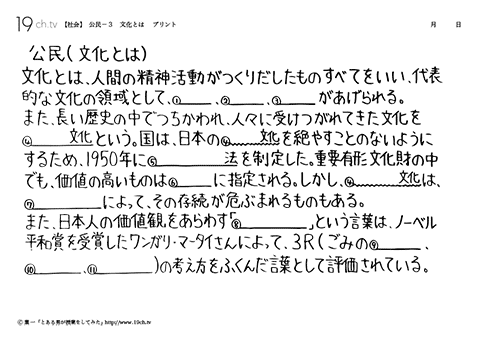 19ch.tv 【社会】 公民-3 文化とは プリント 月 日
公民(文化とは)
文化とは、人間の精神活動がつくりだしたものすべてをいい、代表
的な文化の領域として、①____、②____、③____があげられる。
また、長い歴史の中でつちかわれ、人々に受けつがれてきた文化を
④____文化という。国は、日本の④____文化を絶やすことのないように
するため、1950年に⑤____法を制定した。重要有形文化財の中
でも、価値の高いものは⑥____に指定される。しかし、④____文化は、
⑦____によって、その存続が危ぶまれるものもある。
また、日本人の価値観をあらわす「⑧____」という言葉は、ノーベル
平和賞を受賞したワンガリ・マータイさんによって、3R(ごみの⑨____、
⑩____、⑪____)の考え方をふくんだ言葉として評価されている。
© 葉一 「とある男が授業をしてみた」 http://www.19ch.tv